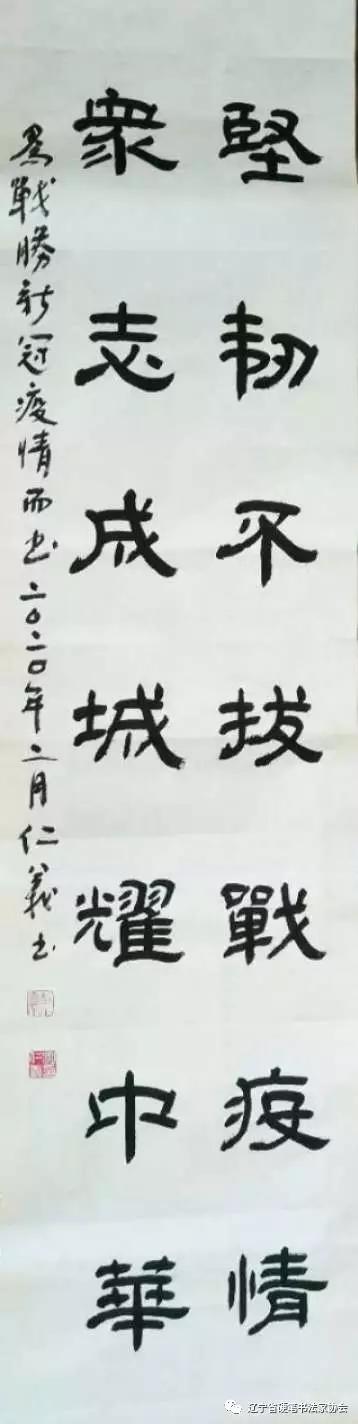 堅韌不拔戰疫情
衆志成城耀中華
爲戰勝新冠疫情而书二〇二〇年二月仁義书
辽宁省硬笔书法家协会